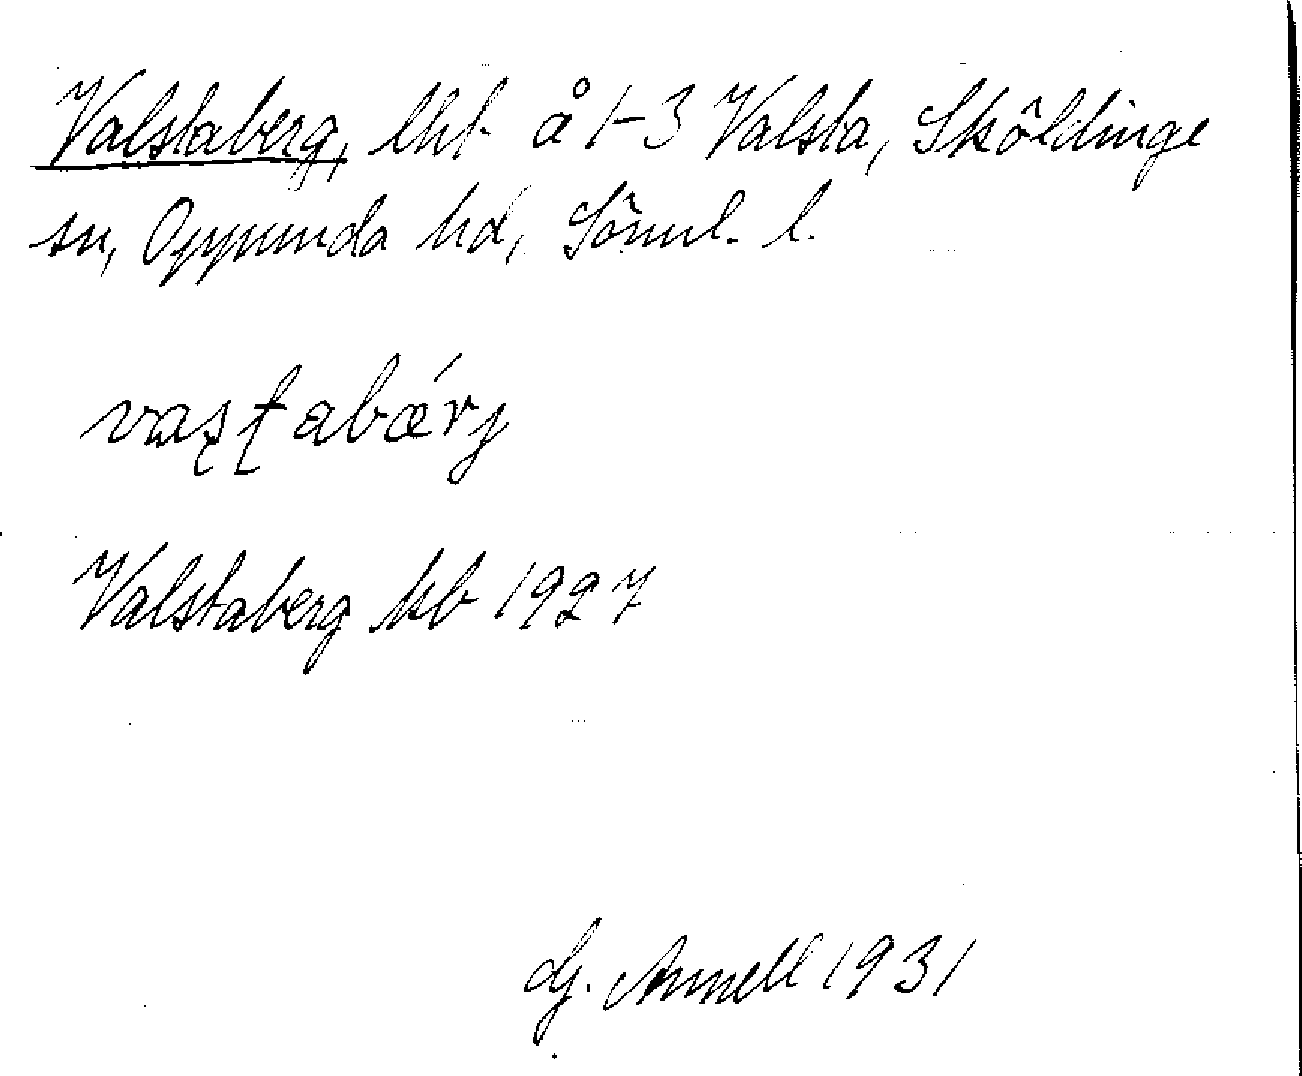 Valstaberg, lht å 1-3 Valsta, Sköldinge
sn, Oppunda hd, Söml. l.
vaʂʈabǽrj
Valstaberg kb 1927
G. Annell 1931